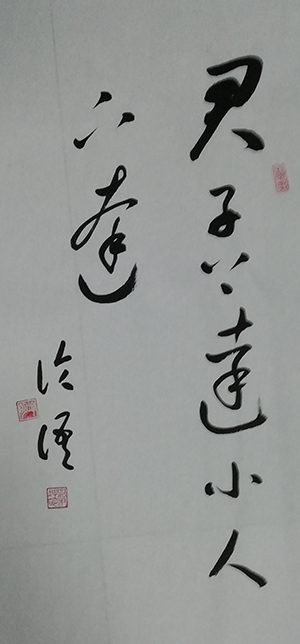 君子上達小人
下達
論語